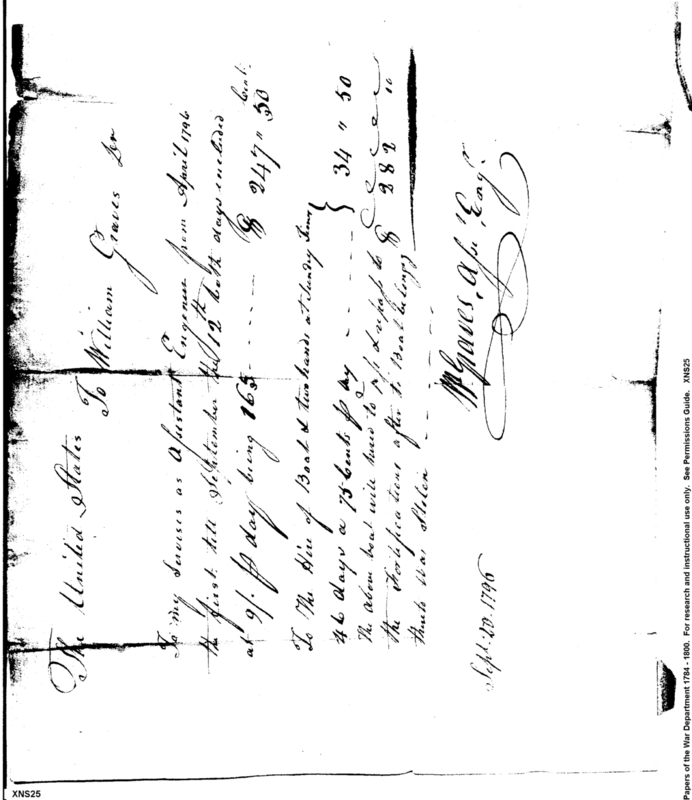 The United States
To William Graves Dr
To my Servises as Assistant Engeneer from April 1796
the first till September the 12th both days included
at 9/. p day being 165 - - - - $ 247 " 50
Cents
To The Hire of Boat & two hands at Sundry times
46 days a 75 Cents p day - - - - } 34 " 50
the above boat will hired to
the Fortifications after to Boat belongg $ 282 " 00
thereto was Stolen - - - -
Wm Graves, Asst Engr.
Sept. 20. 1796
Papers of the War Department 1784 - 1800. For research and instructional use only. See Permissions Guide. XNS25
XNS25